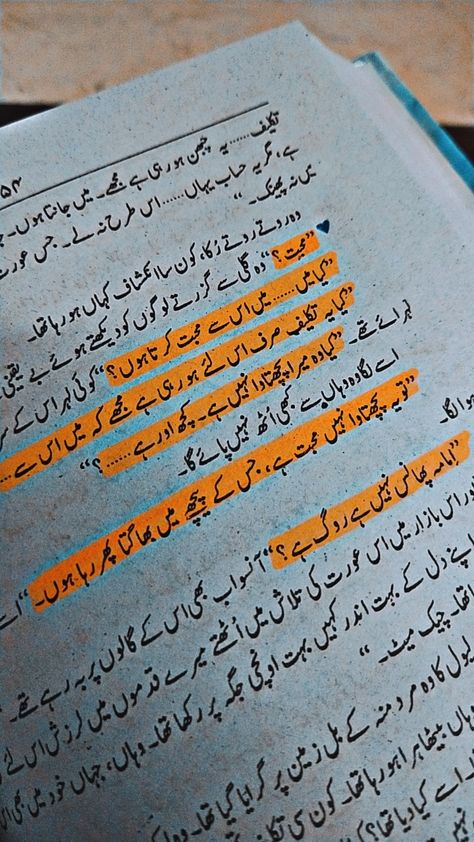 ۵۴
تکلیف......یہ چبھن ہو رہی ہے مجھے۔ میں جانتا ہوں۔
ہے، مگر یہ حساب یہاں......اس طرح نہ لے۔ جس عورت
میں نہ پھینک۔“
وہ روتے روتے رُکا، کون سا انکشاف کہاں ہو رہا تھا۔
”محبت؟“ وہ گلی سے گزرتے لوگوں کو دیکھتے ہوئے بے یقینی
”کیا میں......میں اس سے محبت کرتا ہوں؟“ کوئی لہر اس کے
”کیا یہ تکلیف صرف اس لئے ہو رہی ہے مجھے کہ میں اس سے......
لہرائے تھے۔ ”کیا وہ میرا پچھتاوا نہیں ہے۔ کچھ اور ہے......؟“
اسے لگا وہ وہاں سے کبھی اُٹھ نہیں پائے گا۔
”تو یہ پچھتاوا نہیں محبت ہے، جس کے پیچھے میں بھاگتا پھر رہا ہوں۔“ اسے
”امامہ پھانس نہیں ہے روگ ہے؟“ آنسو اب بھی اس کے گالوں پر بہہ رہے تھے۔
اس بازار میں اس عورت کی تلاش میں اُٹھتے میرے قدموں میں لرزش اس لئے
اپنے دل کے بہت اندر کہیں بہت اونچی جگہ پر رکھا تھا۔ وہاں، جہاں خود میں بھی
تھا۔ چیک میٹ۔“
کا وہ مرد منہ کے بل زمین پر گرایا گیا تھا۔ وہ
بیٹھا ہرا ہو رہا تھا۔ کون سی
اسے کیا دیا تھا؟